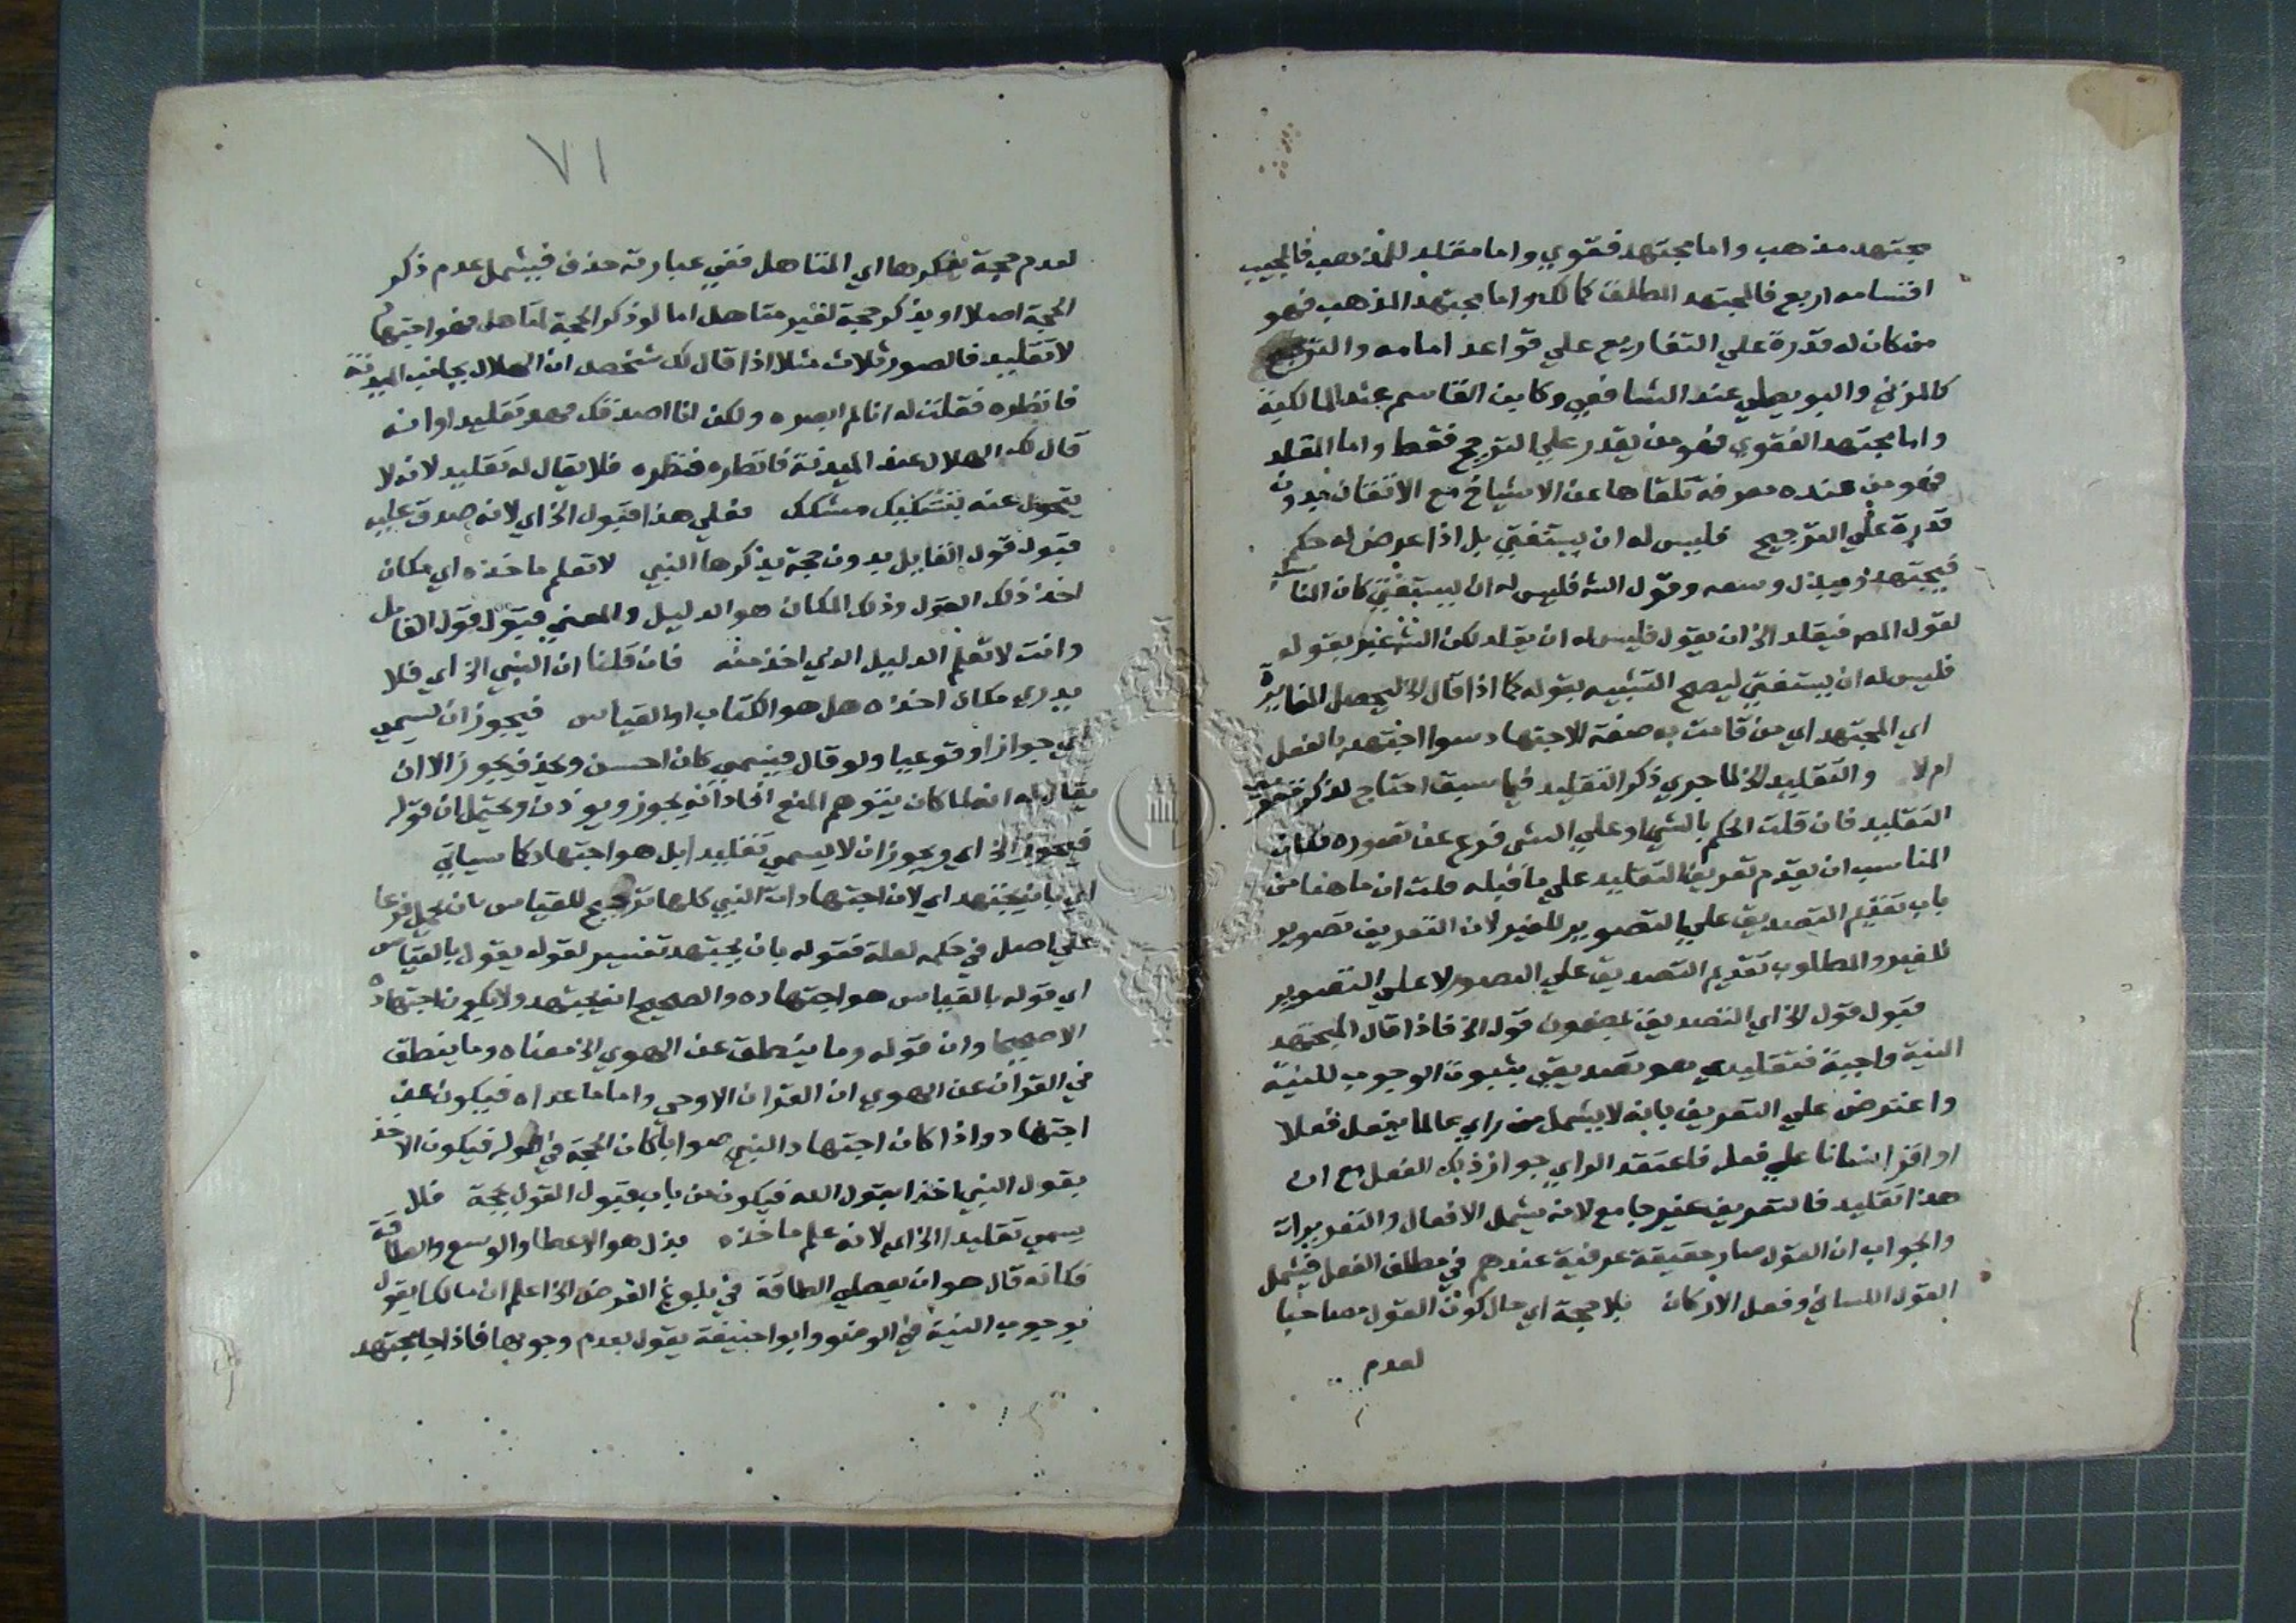 مجتهد مذهب واما مجتهد فتوي واما مقلد للمذهب فالمجيب
اقسامه اربع فالمجتهد المطلق كمالك واما مجتهد المذهب فهو
من كان له قدرة علي التفاريع علي قواعد امامه والترجيح
كالمزني والبويطي عند الشافعي وكابن القاسم عند المالكية
واما مجتهد الفتوي فهو من يقدر علي الترجيح فقط واما المقلد
فهو من عنده معرفة تلقاها عن الاشياخ مع الاتقان بدون
قدرة علي الترجيح فليس له ان يستفتي بل اذا عرض له حكم
فيجتهد ويبذل وسعه وقول الش فليس له ان يستفتي كان المناسب
لقول المص فيقلد الخ ان يقول فليس له ان يقلد لكن الش عبر بقوله
فليس له ان يستفتي ليصح التشبيه بقوله كما اذا قال الخ ليحصل المغايرة
اي المجتهد اي من قامت به صفة الاجتهاد سوا اجتهد بالفعل
ام لا والتقليد الخ لما جري ذكر التقليد فيما سبق احتاج لذكر تعريف
التقليد فان قلت الحكم بالشي او علي الشي فرع عن تصوره فكان
المناسب ان يقدم تعريف التقليد علي ما قبله قلت ان ما هنا من
باب تقديم التصديق علي التصوير للغير لان التعريف تصوير
للغير والمطلوب تقديم التصديق علي التصور لا علي التصوير
قبول قول الخ اي التصديق بمضمون قوله الخ فاذا قال المجتهد
النية واجبة فتقليدي هو تصديقي بثبوت الوجوب للنية
واعترض علي التعريف بانه لا يشمل من راي عالما يفعل فعلا
او اقر انسانا علي فعله فاعتقد الراي جواز ذلك الفعل مع ان
هذا تقليد فالتعريف غير جامع لانه يشمل الافعال والتقريرات
والجواب ان القول صار حقيقة عرفية عندهم في مطلق الفعل فيشمل
القول اللساني وفعل الاركان بلا حجة اي حال كون القول مصاحبا
لعدم
٧١
لعدم حجة يذكرها اي المتاهل ففي عبارته حذف فيشمل عدم ذكر
الحجة اصلا او يذكر حجة لغير متاهل اما لو ذكر الحجة لمتاهل فهو اجتهاد
لا تقليد فالصور ثلاث مثلا اذا قال لك شخص ان الهلال بجانب الميدنة
فانظره فقلت له انا لم ابصره ولكن انا اصدقك فهو تقليد او انه
قال لك الهلال عند الميدنة فانظره فنظره فلا يقال له تقليد لانه لا
يتحول عنه بتشكيك مشكك فعلي هذا قبول الخ اي لانه صدق عليه
قبول قول القايل بدون حجة يذكرها النبي لا تعلم ماخذه اي مكان
اخذ ذلك القول وذلك المكان هو الدليل والمعني قبول قول القايل
وانت لا تعلم الدليل الذي اخذ منه فان قلنا ان النبي الخ اي فلا
يدري مكان اخذه هل هو الكتاب او القياس فيجوز ان يسمي
اي جوازا وقوعيا ولو قال فيسمي كان احسن وحذف يجوز الا ان
يقال له انه لما كان يتوهم المنع افاد انه يجوز ويوذن ويحتمل ان قوله
فيجوز الخ اي ويجوز ان لا يسمي تقليدا بل هو اجتهاد كما سياتي
اي بان يجتهد اي لان اجتهادات النبي كلها ترجع للقياس بان يحمل فرعا
علي اصل في حكمه لعلة فقوله بان يجتهد تفسير لقوله يقول بالقياس
اي قوله بالقياس هو اجتهاده والصحيح انه يجتهد ولا يكون اجتهاده
الا صحيحا وان قوله وما ينطق عن الهوي الخ معناه وما ينطق
في القران عن الهوي ان القران الا وحي واما ما عداه فيكون عن
اجتهاد واذا كان اجتهاد النبي صوابا كان الحجة في قوله فيكون الاخذ
بقول النبي اخذا بقول الله فيكون من باب قبول القول بحجة فلا
يسمي تقليدا الخ اي لانه علم ماخذه بذل هو الاعطا والوسع والطاقة
فكانه قال هو ان يعطي الطاقة في بلوغ الغرض الخ اعلم ان مالكا يقول
بوجوب النية في الوضو وابو حنيفة يقول بعدم وجوبها فاذا جا مجتهد